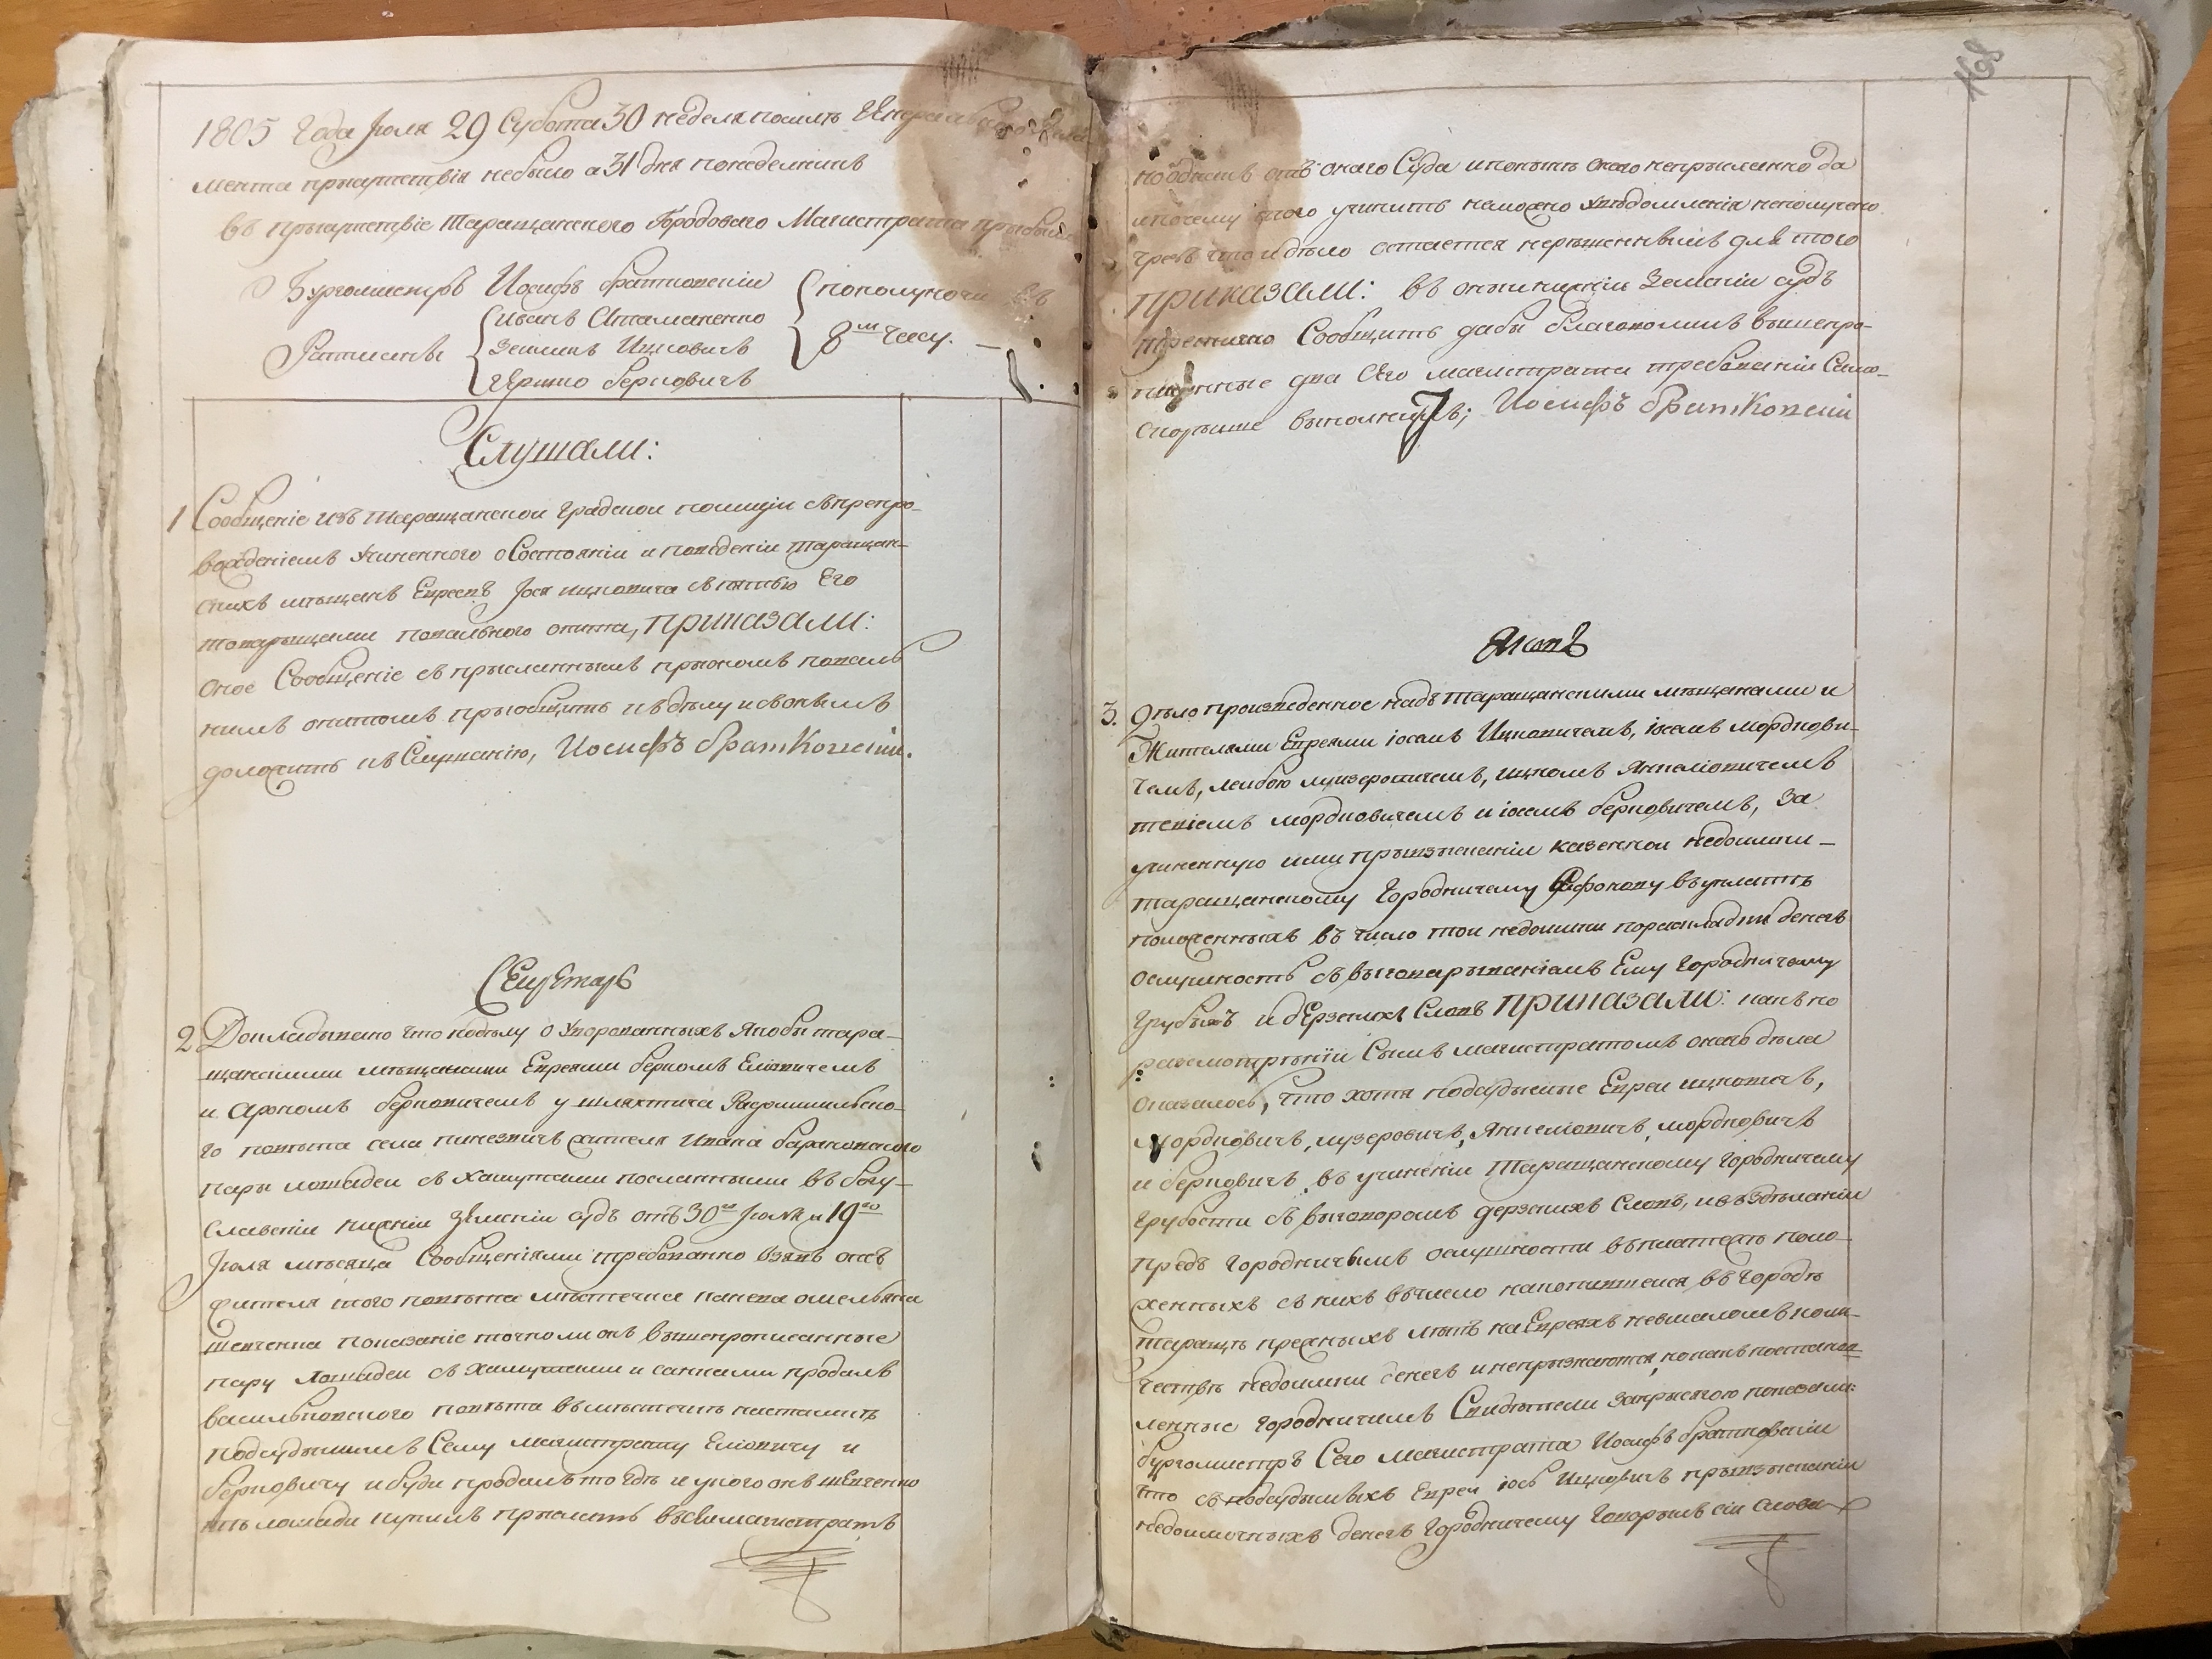 1805 Года Июля 29 Субота 30 неделя
мента присутствия небыло а 31 дня понеделникъ
въ присутствіе Таращанского Городового Магистрата прибыли
Бургомистръ Иосифъ Братковскіи
пополуночи въ
Ратманы
Иванъ Атаманенко
8м часу.
Зелманъ Ицковичъ
Гершко Берковичъ
Слушали:
1 Сообщеніе изъ Таращанскои градскои полиціи съ препро-
вожденіемъ учиненного о состояніи и поведеніи таращан-
скихъ мѣщанъ Евреевъ Іося Ицковича съ пятью Его
товарищами повального опыта, приказали:
оное Сообщеніе съ присланнымъ при ономъ поваль
нымъ опытомъ пріобщить къ дѣлу и съ онымъ
доложить къ Слушанію, Иосифъ Братковскіи.
Секретарь
2 Докладывано что по дѣлу о уворованныхъ якобы тара-
щанскими мѣщанами Евреями Беркомъ Еліовичемъ
и Арономъ Берковичемъ у шляхтича Радомишльско-
го повѣта села жителя Ивана Барановского
пары лошадеи съ хамутами посланными въ Богу-
славскіи нижніи Земскіи судъ отъ 30го и 19го
Июля мѣсяца Сообщеніями требованно взявъ отъ
жителя того повѣта мѣстечка
шевченка показаніе точно ли онъ вышепрописанные
пару лошадеи съ хамутами и санками продалъ
василковского повѣта въ мѣстечкѣ
подсудимымъ Сему магистрату Еліовичу и
Берковичу и буди продалъ то гдѣ и у кого онъ шевченко
тѣ лошади купилъ прислать въ сеи магистратъ
168
но однакъ отъ онаго Суда и понынѣ оного неприсланно да
и почему того учинить неможно увѣдомленія неполучено
чрезъ что и дѣло остается нерѣшеннымъ для того
приказали: въ онъ нижніи Земскіи судъ
Сообщить дабы благоволилъ вышепро-
писанные два Сего магистрата требованіи Само-
скорѣише выполнить; Иосифъ Братковскіи
Актъ
3. Дѣло произведенное надъ таращанскими мѣщанами и
Жителями Евреями іосемъ Ицковичемъ, іосемъ Мордкови-
чемъ, леибою лузеровичемъ, ицкомъ Янкеліовичемъ
мордковичемъ и іосемъ Берковичемъ, за
учиненную ими при взысканіи казеннои недоимки
таращанскому Городничему Сафонову въ уплатѣ
положенныхъ въ число тои недоимки по раскладки денегъ
ослушность съ выговариваніемъ Ему городничему
грубыхъ и дерзкихъ Словъ приказали: какъ по
разсмотрѣніи Симъ магистратомъ онаго дѣла
оказалось, что хотя подсудимые Евреи ицковичъ,
мордковичъ, лузеровичъ, Янкеліовичъ, мордковичъ
и Берковичъ въ учиненіи таращанскому городничему
грубости съ выговоромъ дерзкихъ Словъ, и въ здѣланіи
предъ Городничымъ ослушности въ платежѣ поло-
женныхъ съ нихъ въ число накопившеися въ городѣ
таращѣ прежныхъ лѣтъ на Евреяхъ немаломъ коли-
чествѣ недоимки денегъ и непризнаются, но какъ поставл-
ленные городничимъ Свидѣтели за присягою показали:
бургомистръ Сего магистрата Иосифъ Братковскіи
что съ подсудимыхъ Евреи іось Ицковичъ при взысканіи
недоимочныхъ денегъ Городничему говорилъ сіи слова